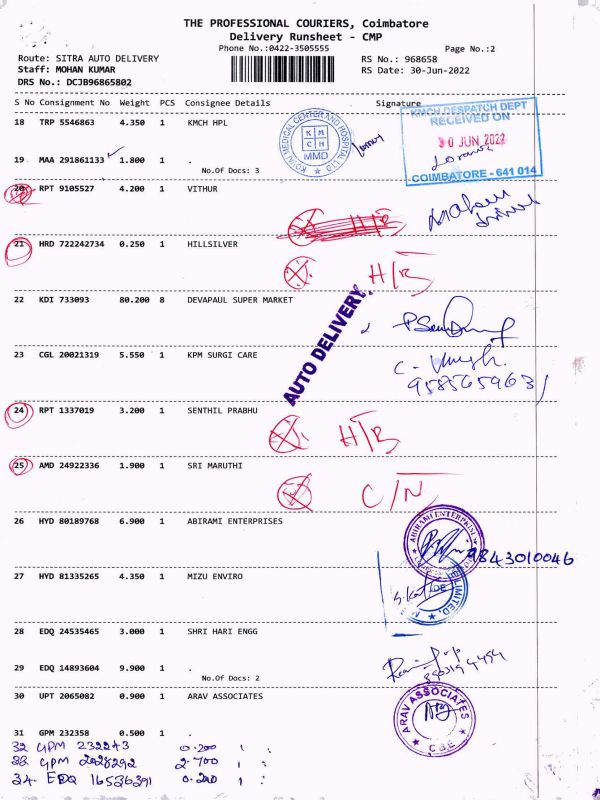 THE PROFESSIONAL COURIERS, Coimbatore
Delivery Runsheet - CMP
Phone No.:0422-3505555
Page No.:2
Route: SITRA AUTO DELIVERY
RS No.: 968658
Staff: MOHAN KUMAR
RS Date: 30-Jun-2022
DRS No.: DCJB96865802
S No Consignment No Weight PCS Consignee Details Signature
18 TRP 5546863 4.350 1 KMCH HPL
KOVAI MEDICAL CENTER AND HOSPITAL LTD
KMCH
MMD
KMCH DESPATCH DEPT
RECEIVED ON
30 JUN 2022
COIMBATORE - 641 014
19 MAA 291861133 1.800 1 .
No.Of Docs: 3
20 RPT 9105527 4.200 1 VITHUR
H/B
21 HRD 722242734 0.250 1 HILLSILVER
H/B
22 KDI 733093 80.200 8 DEVAPAUL SUPER MARKET
AUTO DELIVERY
23 CGL 20021319 5.550 1 KPM SURGI CARE
9585659631
24 RPT 1337019 3.200 1 SENTHIL PRABHU
H/B
25 AMD 24922336 1.900 1 SRI MARUTHI
C/N
26 HYD 80189768 6.900 1 ABIRAMI ENTERPRISES
ABIRAMI ENTERPRISES
9843010046
27 HYD 81335265 4.350 1 MIZU ENVIRO
28 EDQ 24535465 3.000 1 SHRI HARI ENGG
29 EDQ 14893604 9.900 1 .
No.Of Docs: 2
30 UPT 2065082 0.900 1 ARAV ASSOCIATES
ARAV ASSOCIATES
CBE
31 GPM 232358 0.500 1 .
32 GPM 232243 0.200 1 :
33 GPM 2028292 2.700 1 :
34. EDQ 16536391 0.200 1 :